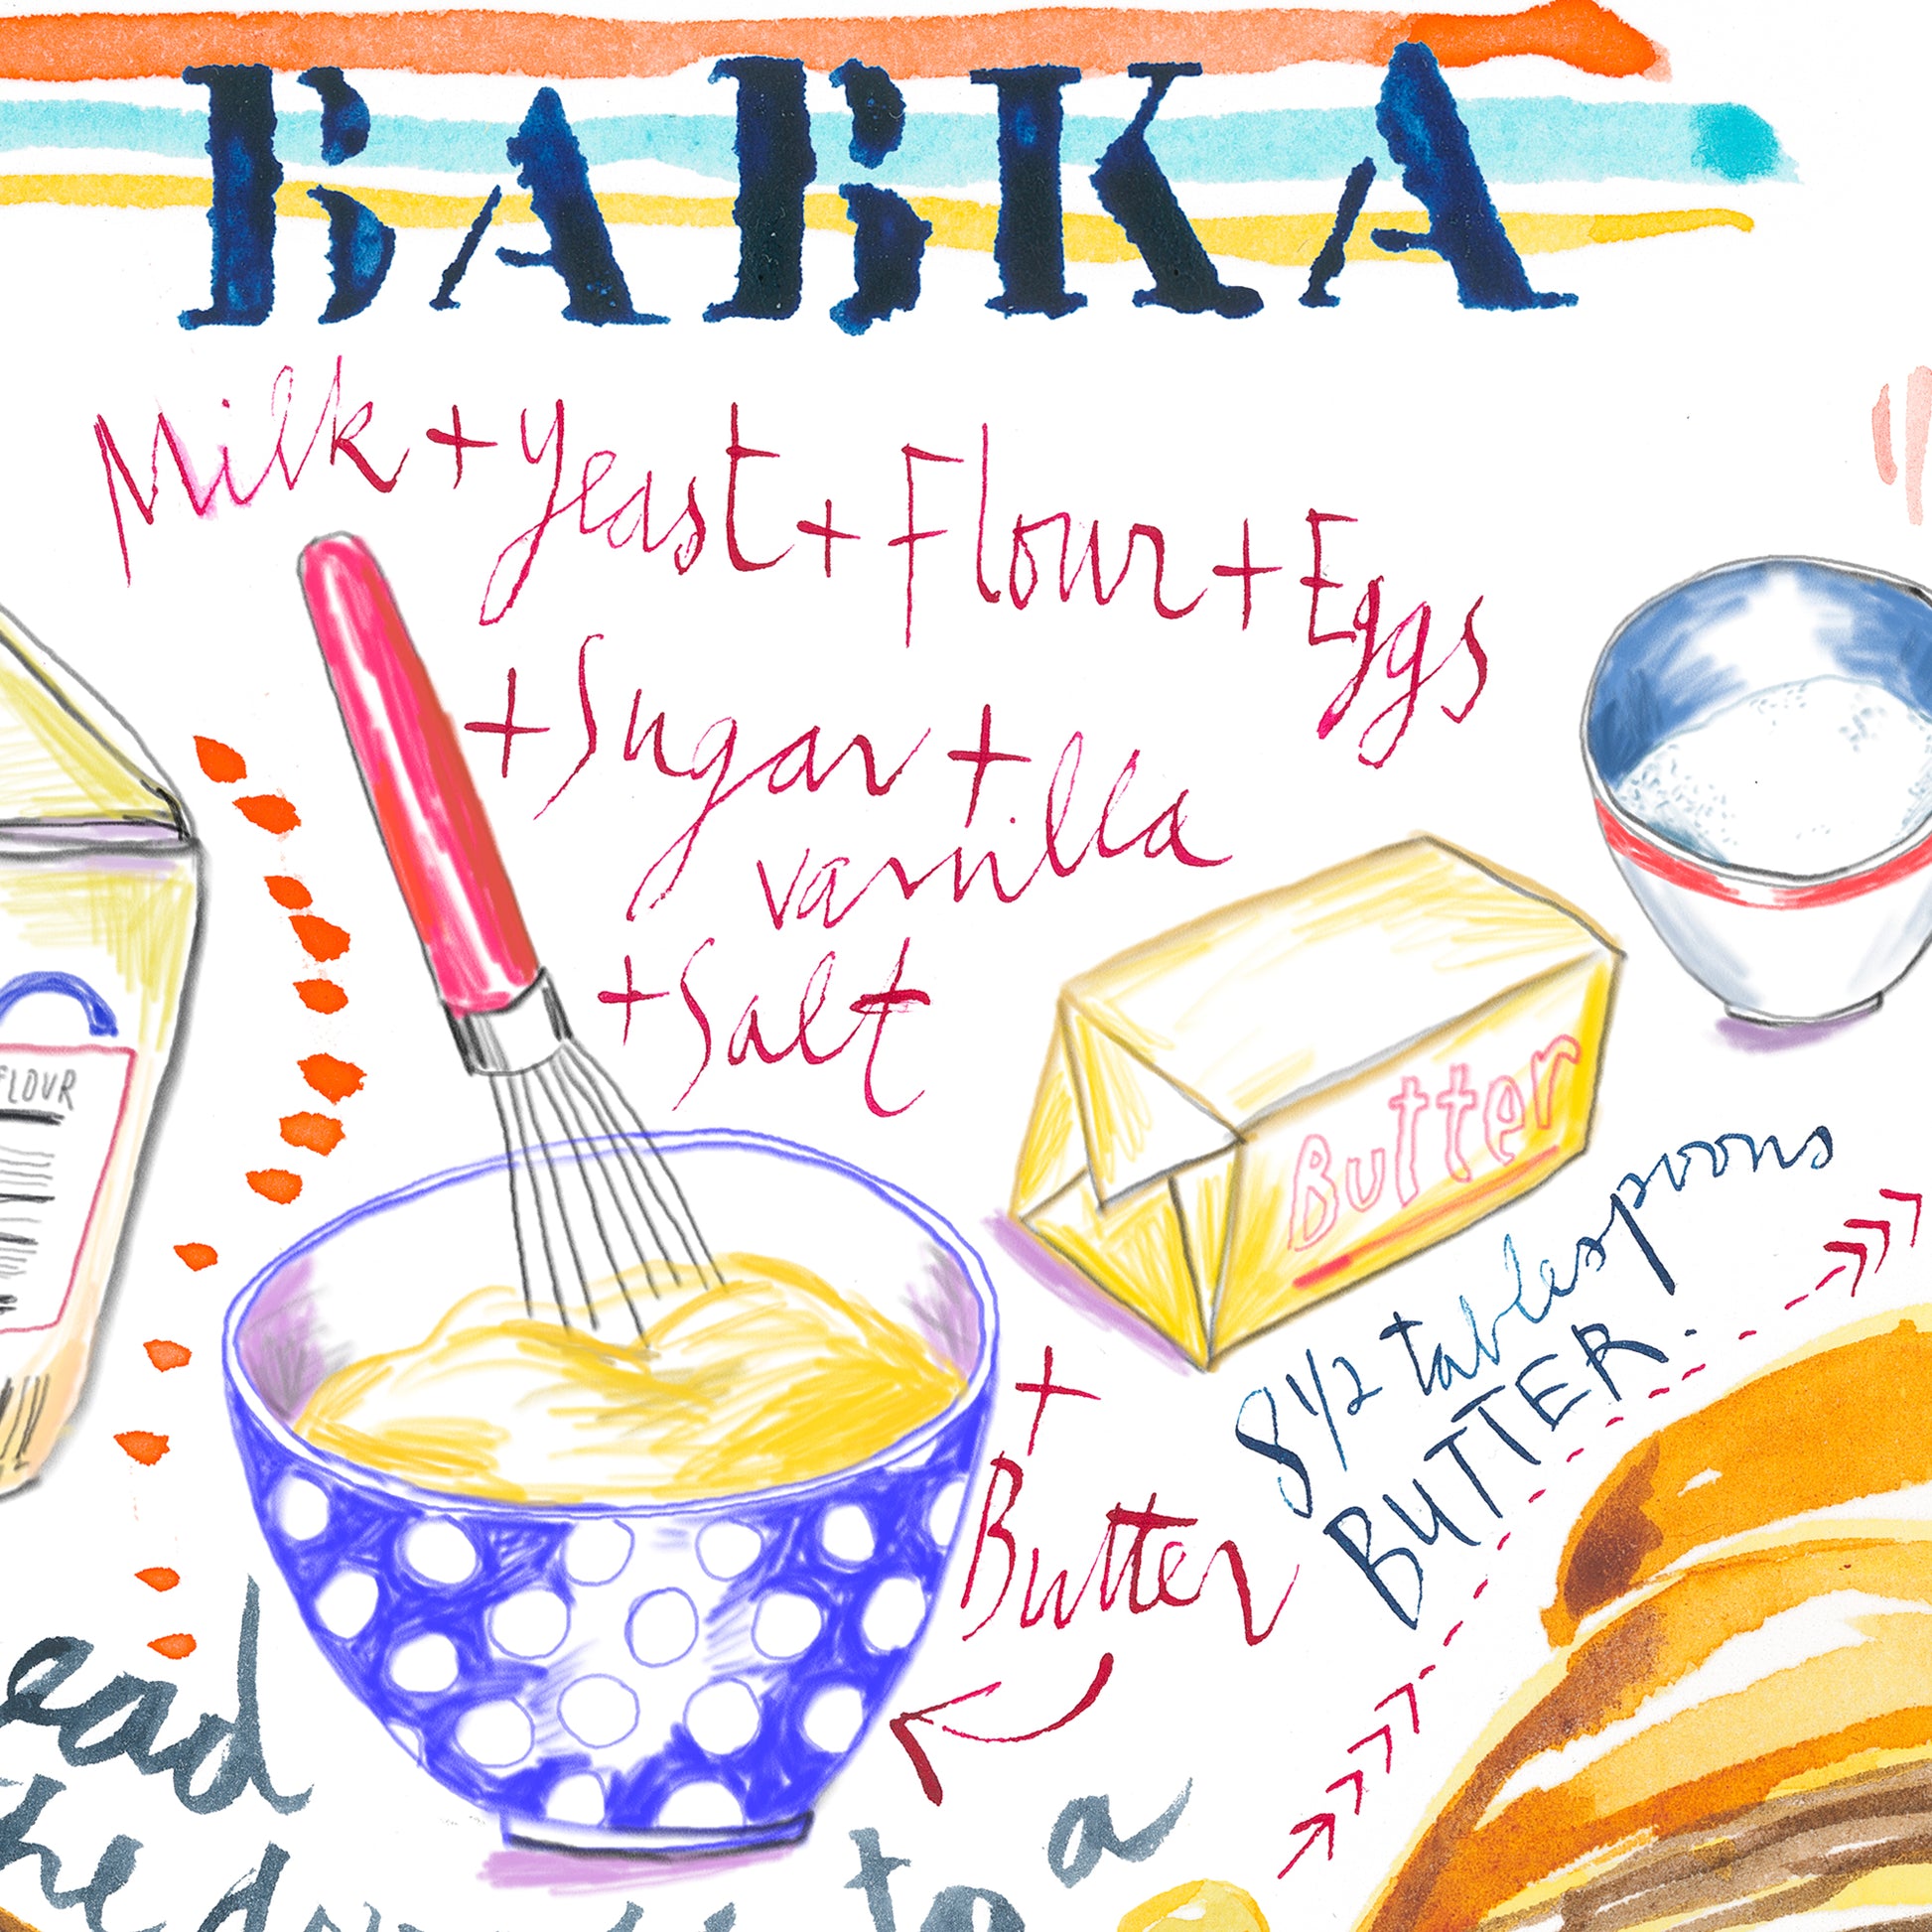 BABKA
Milk + Yeast + Flour + Eggs
+ Sugar + vanilla
+ Salt
FLOUR
Butter
8 1/2 tablespoons
BUTTER
+
Butter
to a